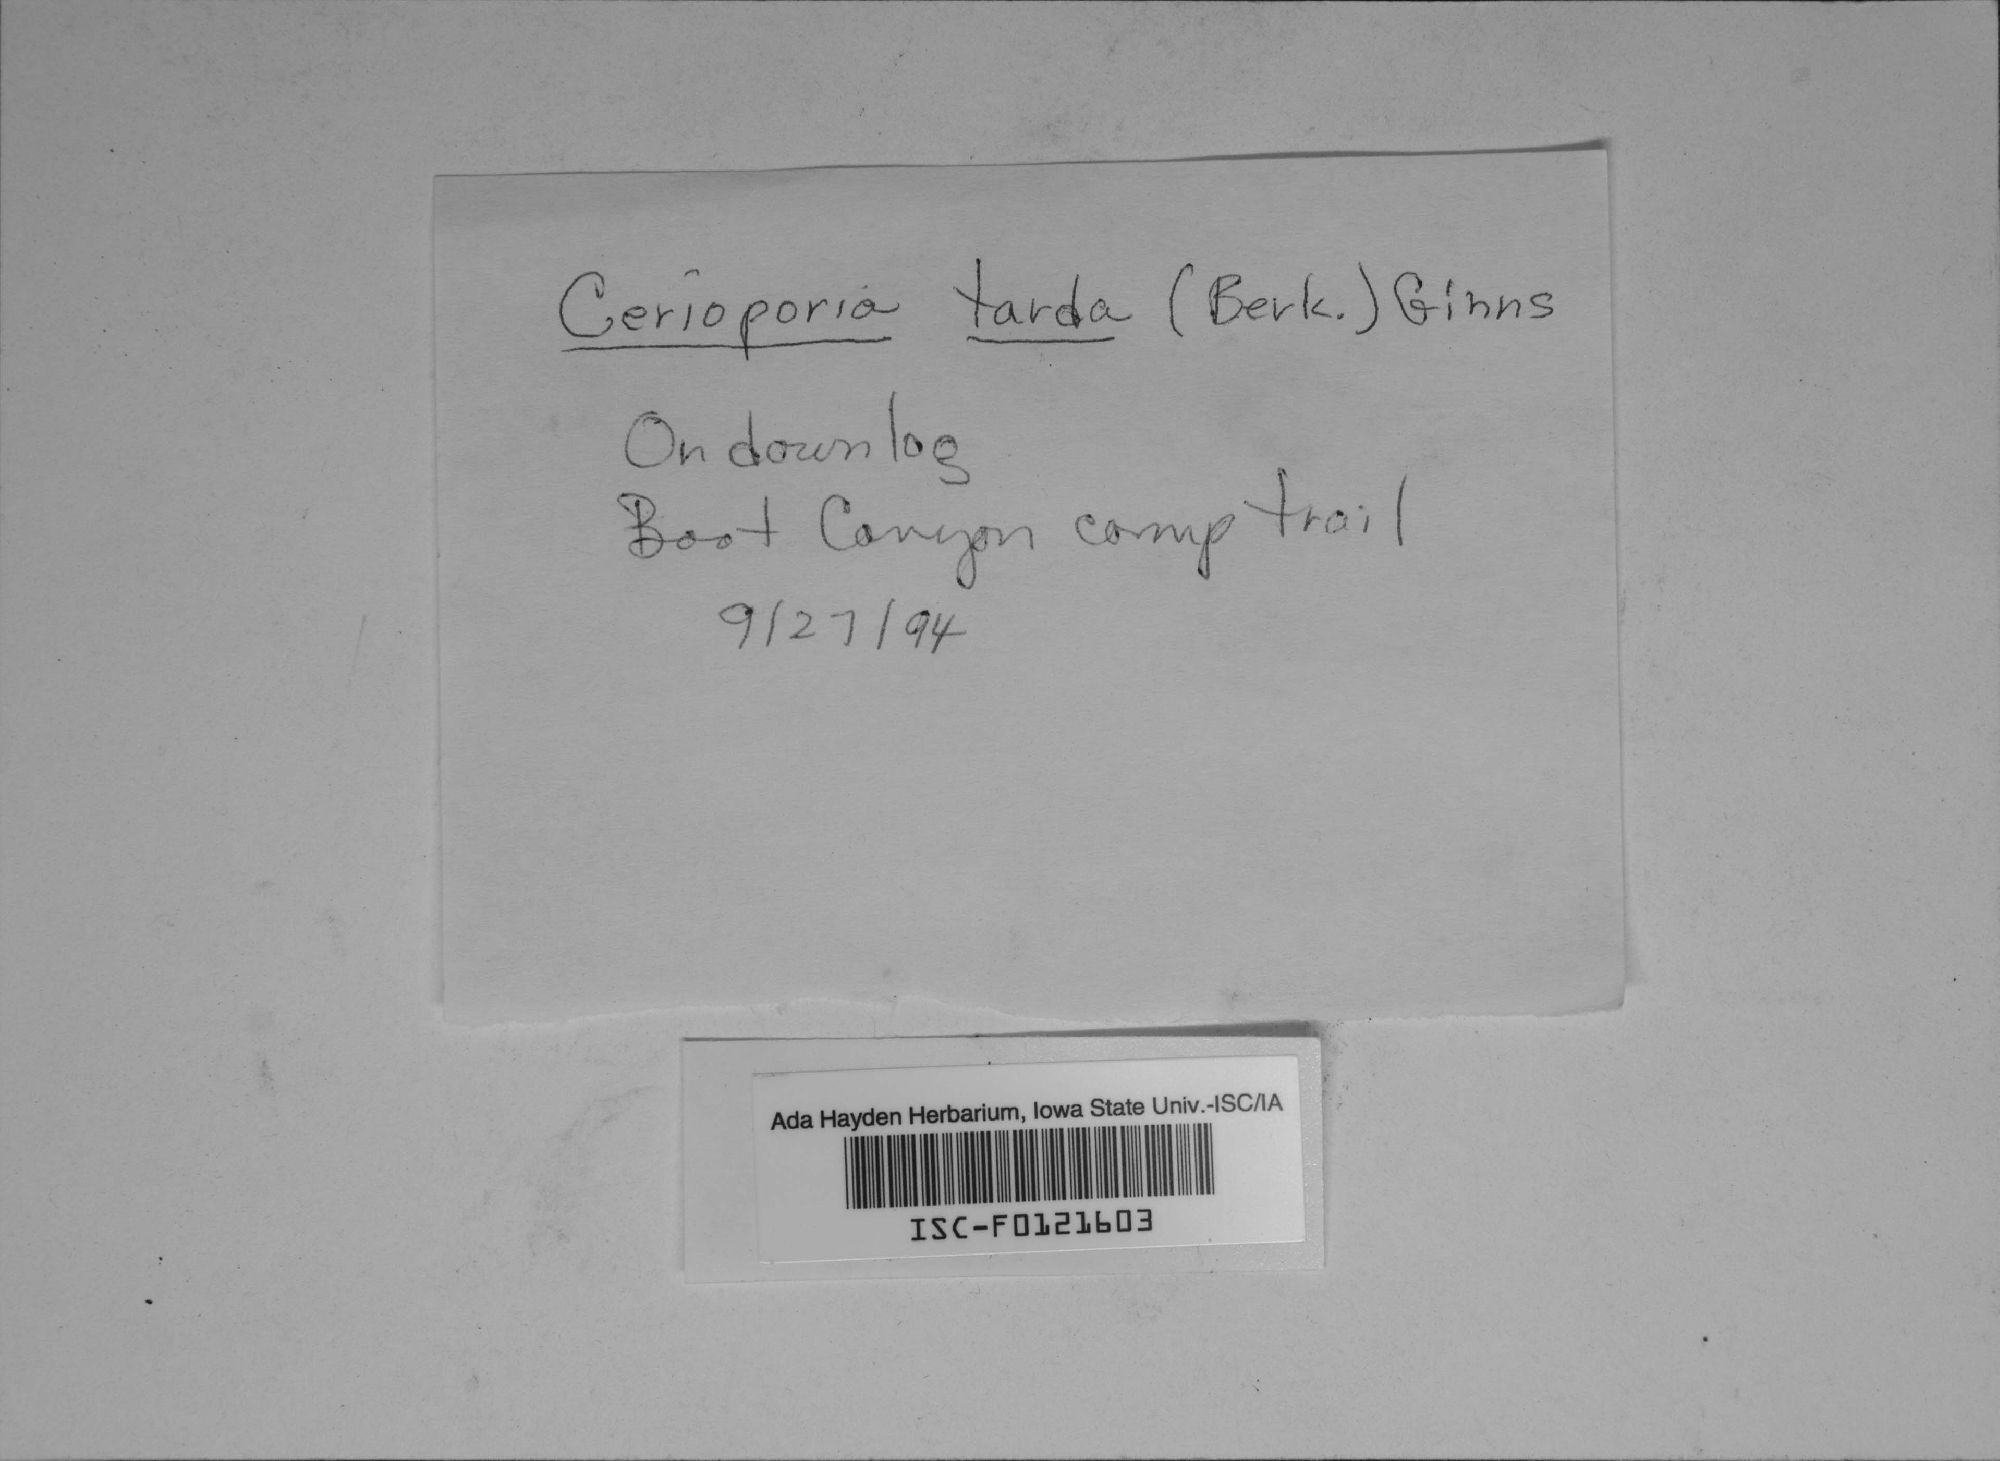 Cerioporia tarda (Berk.) Ginns
On down log
Boot Canyon camp trail
9/27/94
Ada Hayden Herbarium, Iowa State Univ.-ISC/IA
ISC-F0121603